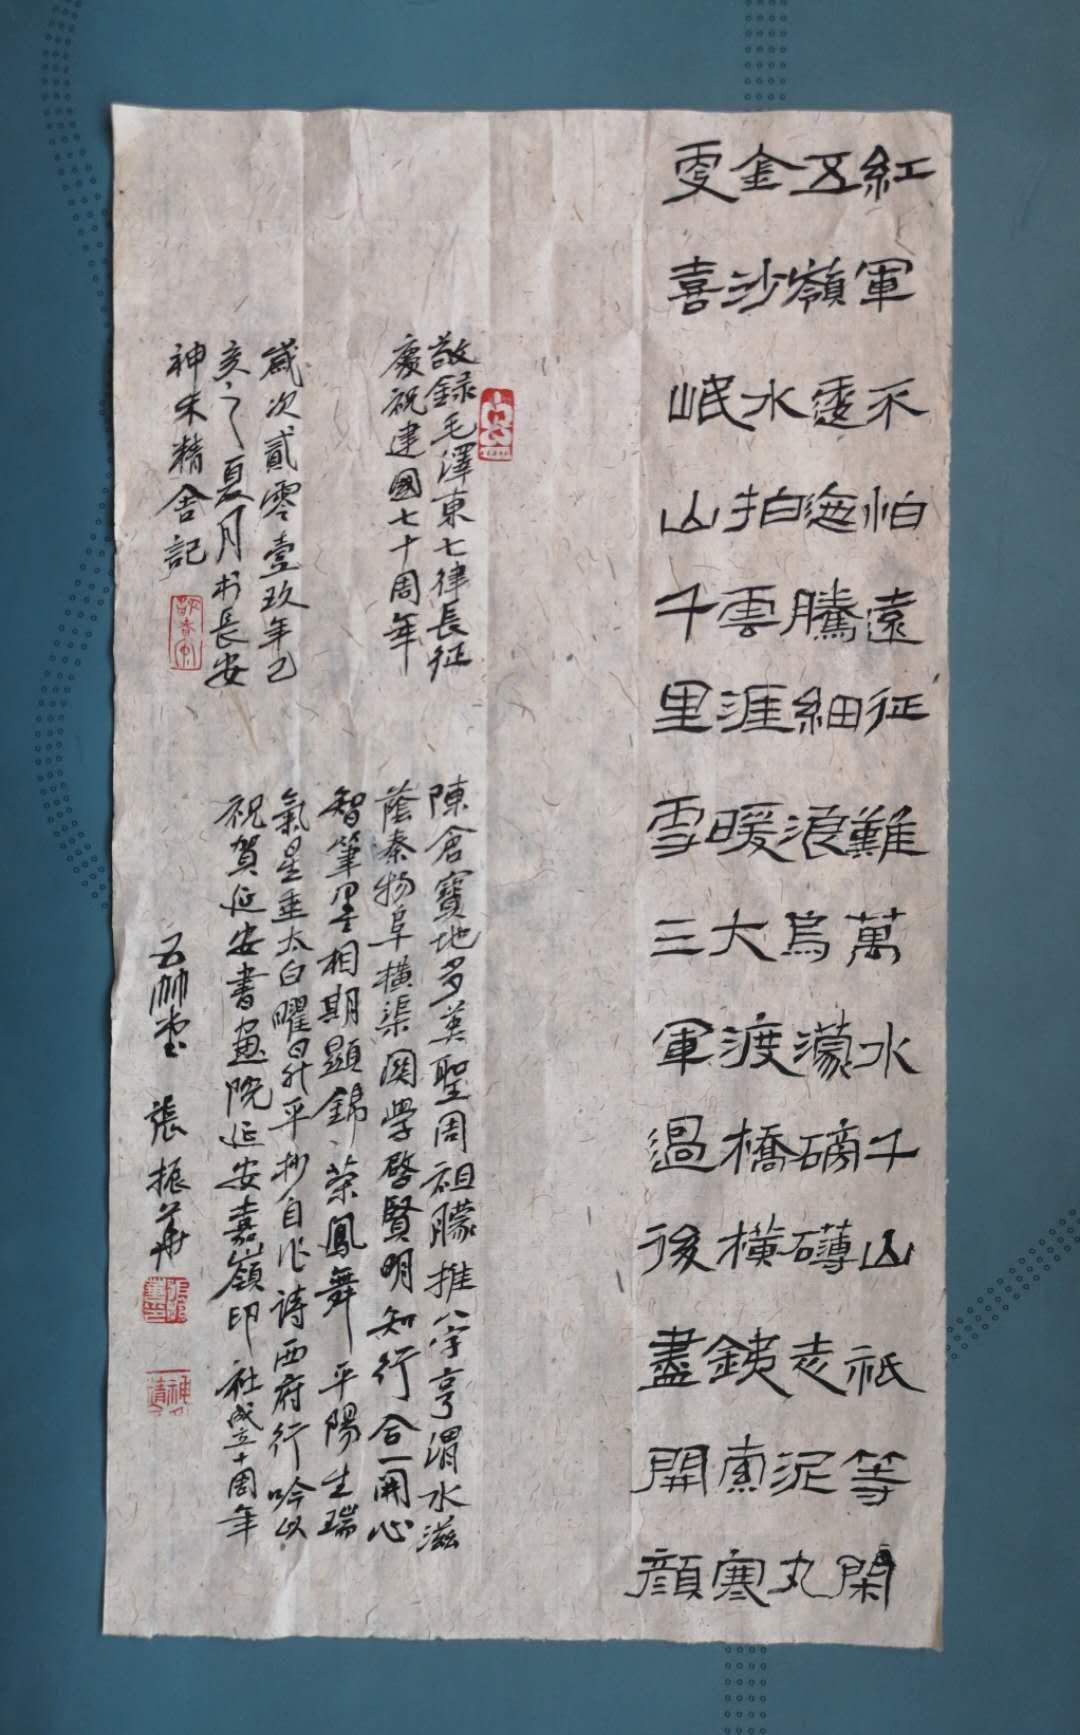 紅軍不怕遠征難萬水千山祇等閑
五嶺逶迤騰細浪烏濛磅礴走泥丸
金沙水拍雲涯暖大渡橋橫銕索寒
更喜岷山千里雪三軍過後盡開顏
敬錄毛澤東七律長征
慶祝建國七十周年
歲次貳零壹玖年己
亥之夏月於長安
神木精舍記
陳倉寶地多英聖周祖朦推八字亨渭水滋
蔭秦物阜橫渠関學啓賢明知行合一開心
智筆墨相期顯錦榮鳳舞平陽生瑞
氣星垂太白曜日升平抄自作詩西府行吟以
祝賀延安書畫院延安嘉嶺印社成立十周年
張振華